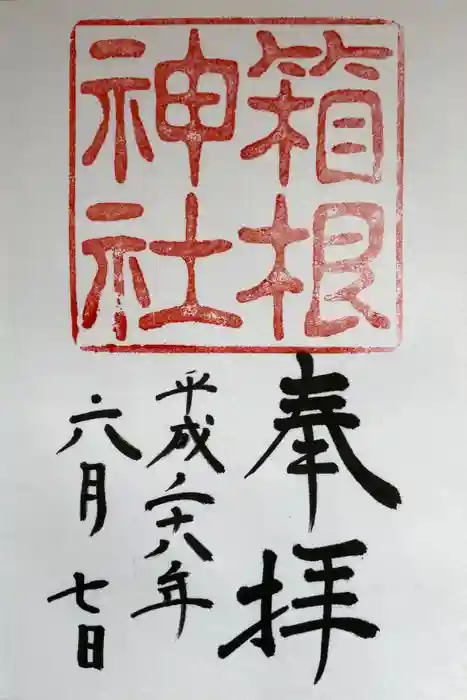 箱根
神社
奉拝
平成二十八年
六月七日